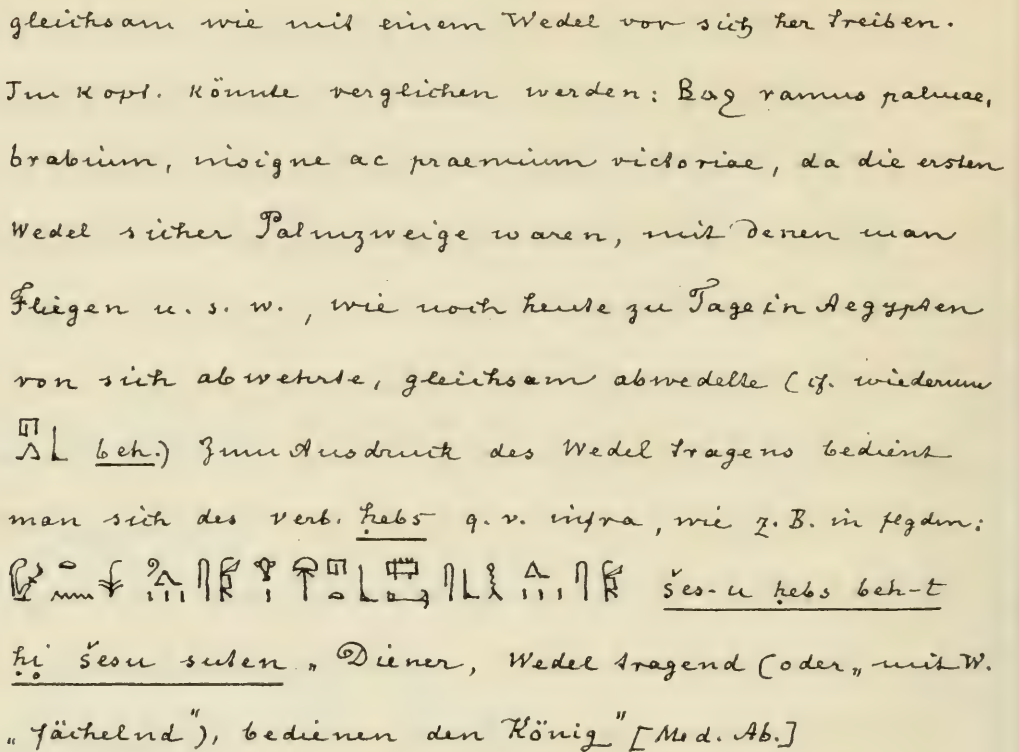 gleichsam wie mit einem Wedel vor sich her treiben.
Im Kopt. könnte verglichen werden: ramus palmae,
brabium, insigne ac praemium victoriae, da die ersten
Wedel sicher Palmzweige waren, mit denen man
Fliegen u. s. w., wie noch heute zu Tage in Aegypten
von sich abwehrte, gleichsam abwedelte (cf. wiederum
beh.) Zum Ausdruck des Wedel tragens bedient
man sich des verb. ḥebs q. v. infra, wie z. B. in flgdm:
šes-u ḥebs beh-t
ḥi šesu suten „Diener, Wedel tragend (oder „mit W.
„fächelnd"), bedienen den König" [Med. Ab.]